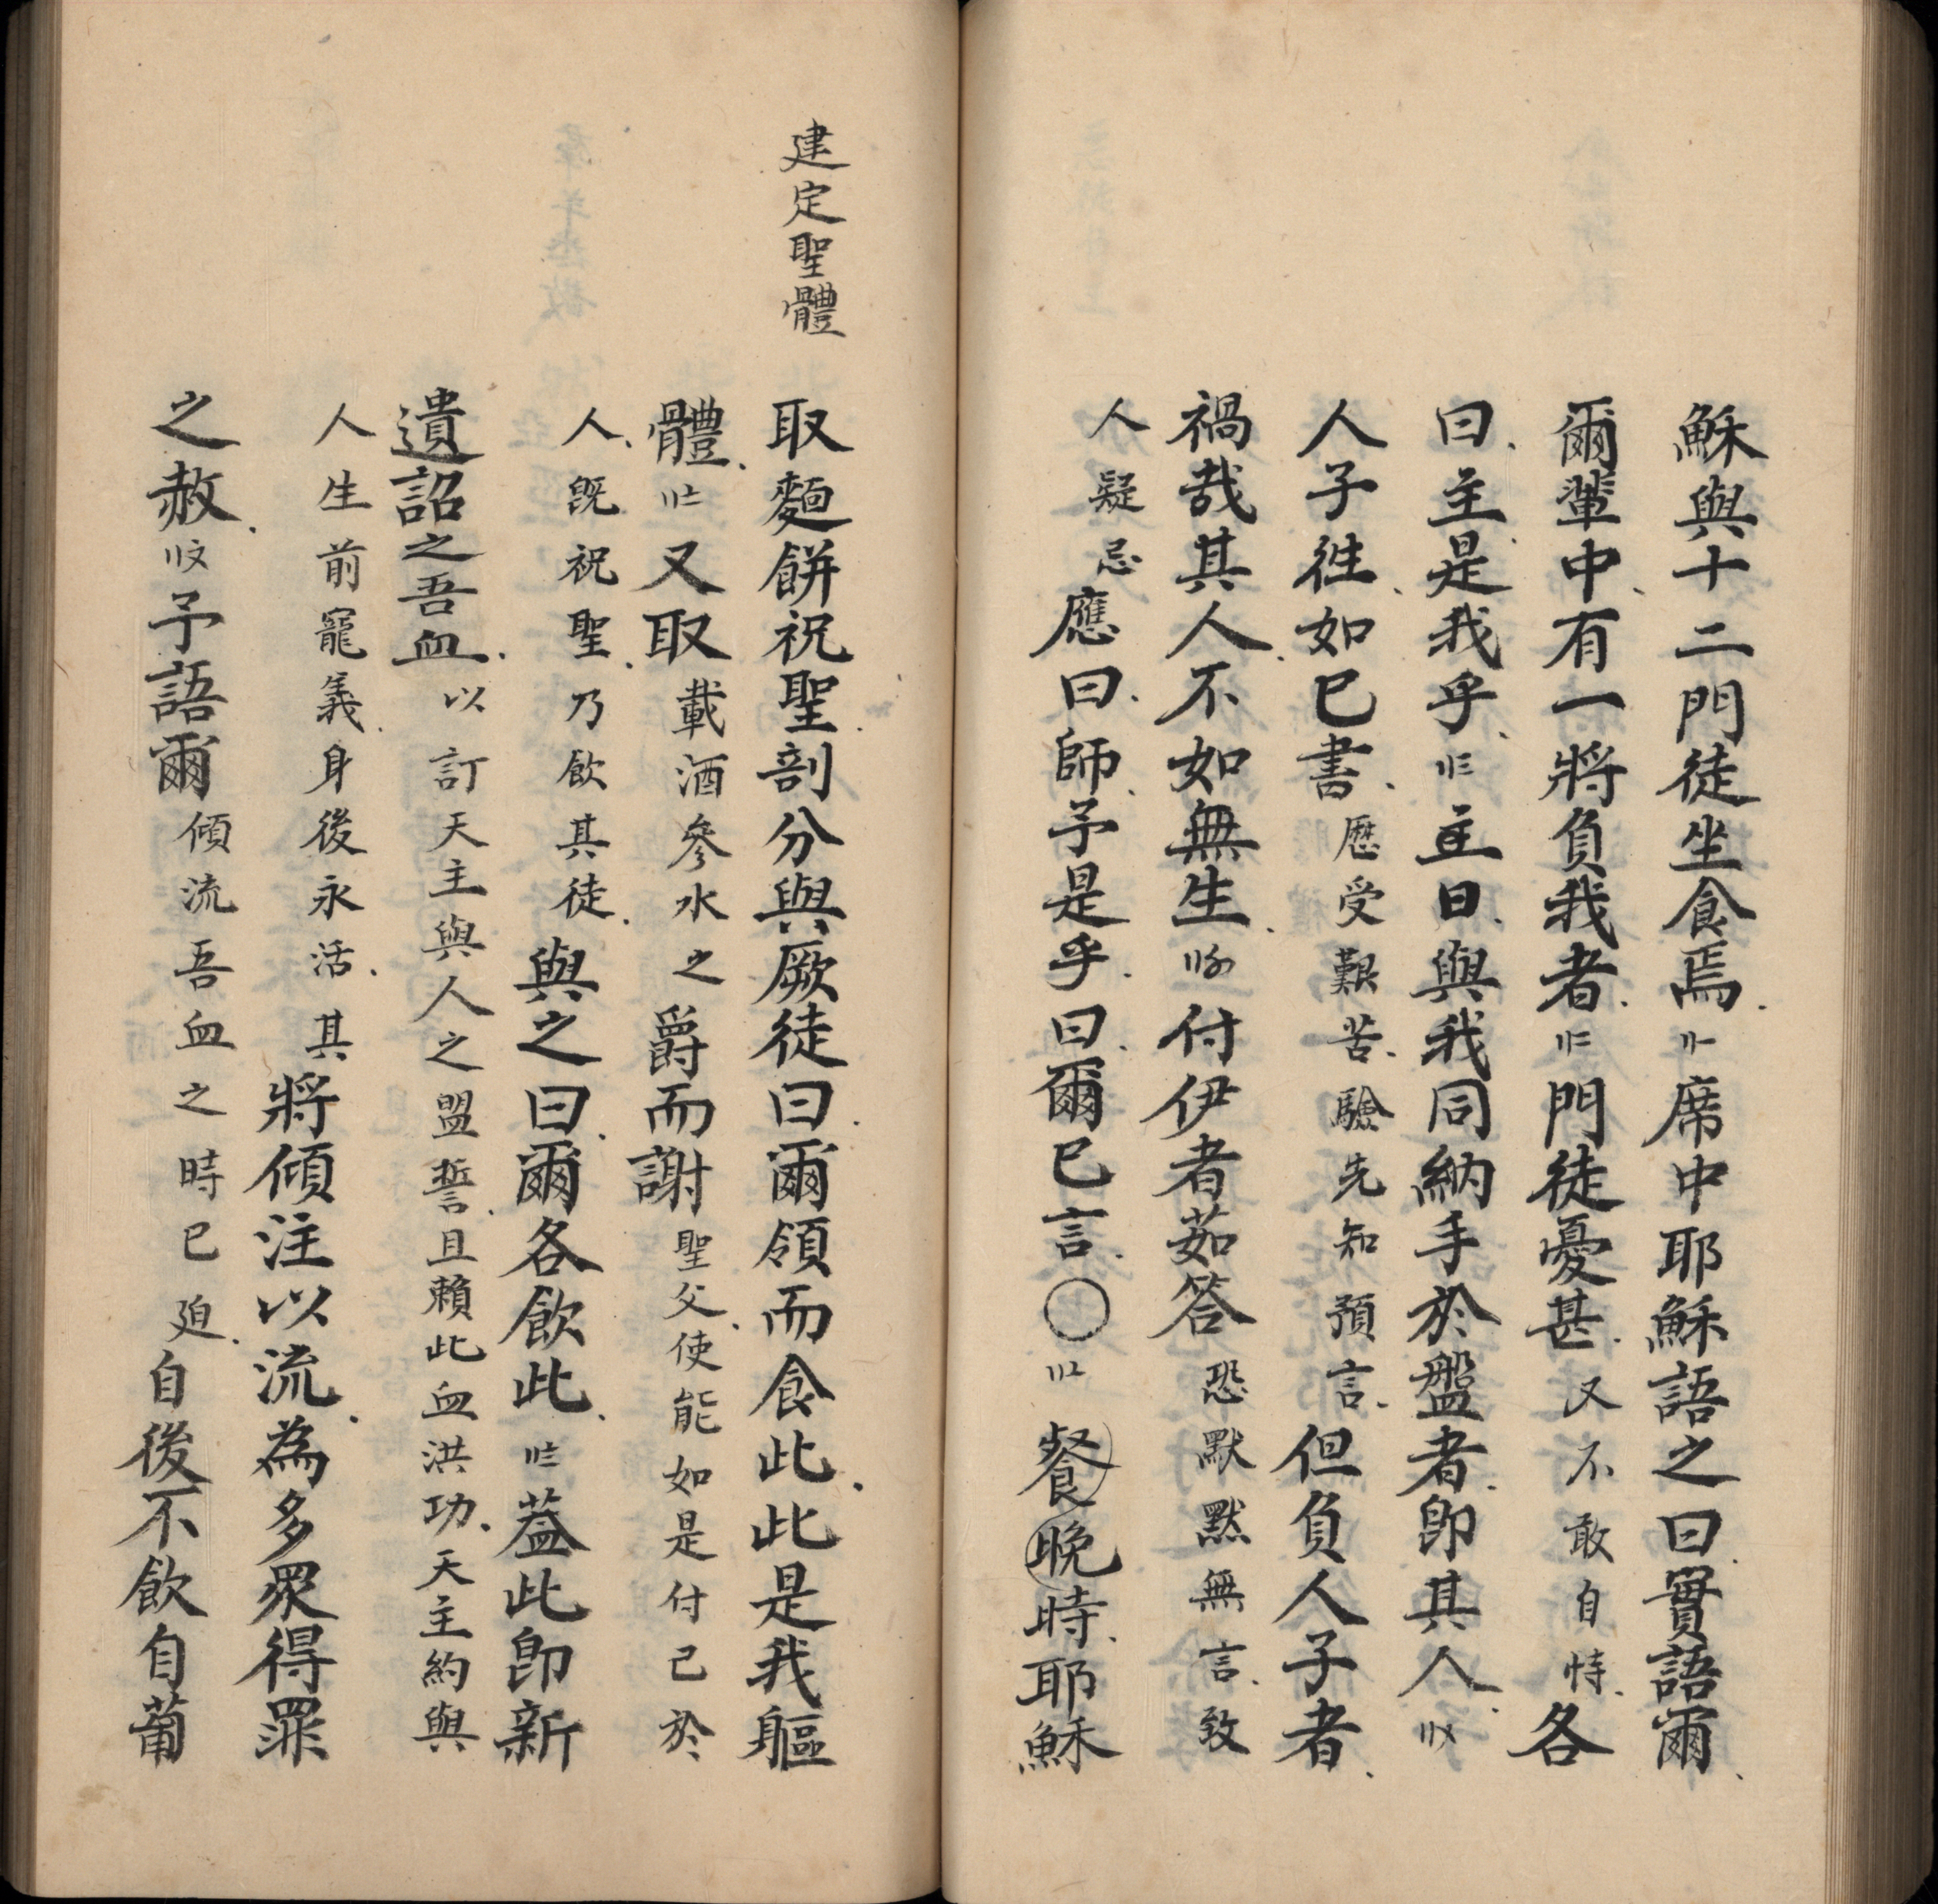 穌與十二門徒坐食焉〢〡席中耶穌語之曰實語爾
爾輩中有一將負我者〢〢門徒憂甚又不敢自恃各
曰主是我乎〢〣主曰與我同納手於盤者即其人〢〤
人子徃如已書歷受艱苦驗先知預言但負人子者
禍哉其人不如無生〢〥付伊者茹答恐默默無言致
人疑忌應曰師予是乎曰爾已言〇〢〦餐晚時耶穌
建定聖體
取麵餅祝聖剖分與厥徒曰爾領而食此此是我軀
體〢〧又取載酒參水之爵而謝聖父使能如是付己於
人既祝聖乃飲其徒與之曰爾各飲此〢〨蓋此即新
遺詔之吾血以訂天主與人之盟誓且賴此血洪功天主約與
人生前寵義身後永活其將傾注以流為多眾得罪
之赦〢〩予語爾傾流吾血之時已廹自後不飲自葡